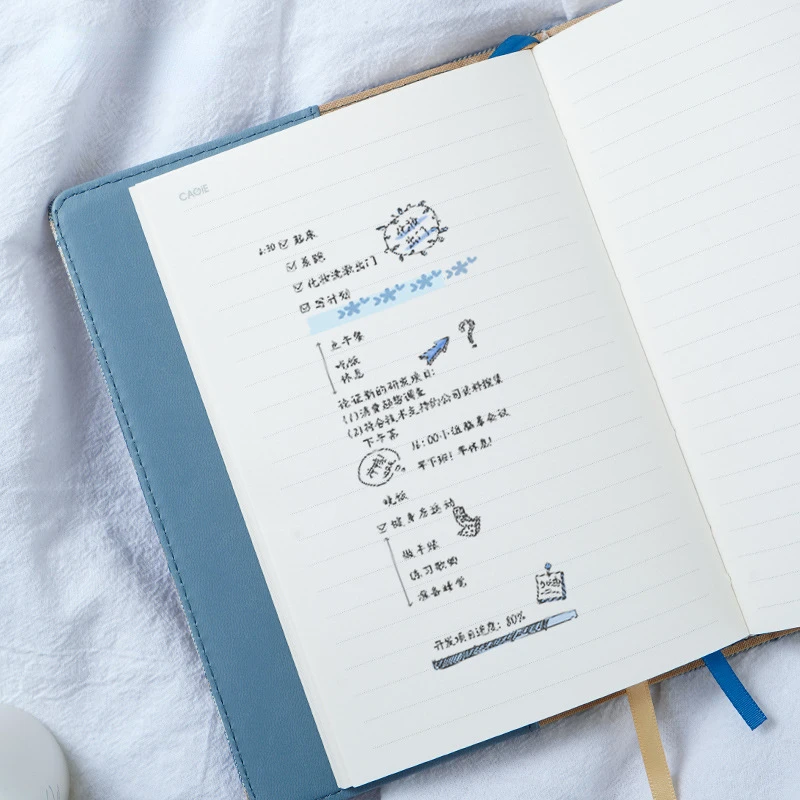 CAGIE
6:30 ☑ 起床
☑ 晨跑
☑ 化妆洗漱出门
☑ 写计划
上午餐
吃饭
休息
论证新的研发项目:
(1)消费趋势调查
(2)符合技术支持的公司资料搜集
下午茶
16:00 小组简单会议
早下班! 早休息!
晚饭
☑ 健身房运动
做手账
练习歌曲
准备睡觉
开发项目进度: 80%